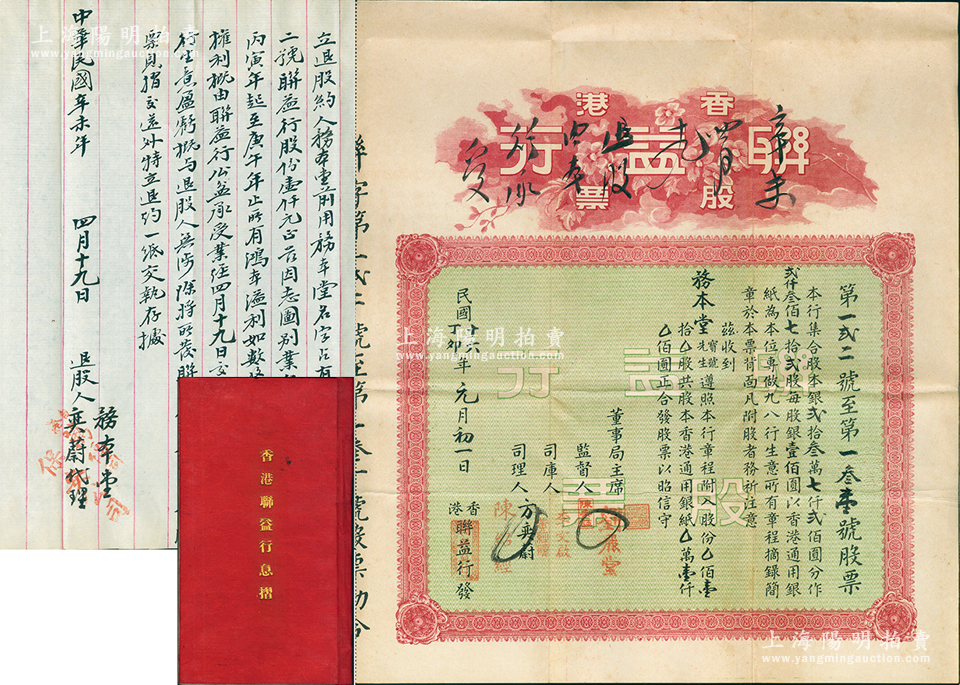 香港
聯益行
股票
辛未
四月
退股
第一弍二號至第一叁壹號股票
本行集合股本銀弍拾叁萬七仟弍佰圓分作
弍仟叁佰七拾弍股每股銀壹佰圓以香港通用銀
紙為本位專做九八行生意所有章程摘錄簡
章於本票背面凡附股者務祈注意
茲收到
務本堂
寶號
先生
遵照本行章程附入股份乙佰壹
拾乙股共股本香港通用銀紙乙萬壹仟
乙佰圓正合發股票以昭信守
董事局主席
監督人
司庫人
司理人
方奕蔚
民國十六年元月初一日
丁卯
香港聯益行發
聯益行
股票
立退股約人務本堂前用務本堂名字占有
二號聯益行股份壹仟元正茲因志圖別業
丙寅年起至庚午年止所有鴻本溢利如數
權利概由聯益行公益承受業經四月十九日
行生意盈虧概与退股人無涉除將所發聯
票息摺交還外特立退約一紙交執存據
中華民國辛未年 四月十九日 退股人 務本堂
奕蔚代理
香港聯益行息摺
上海陽明拍賣
www.yangmingauction.com
上海陽明拍賣
www.yangmingauction.com
上海陽明拍賣
www.yangmingauction.com